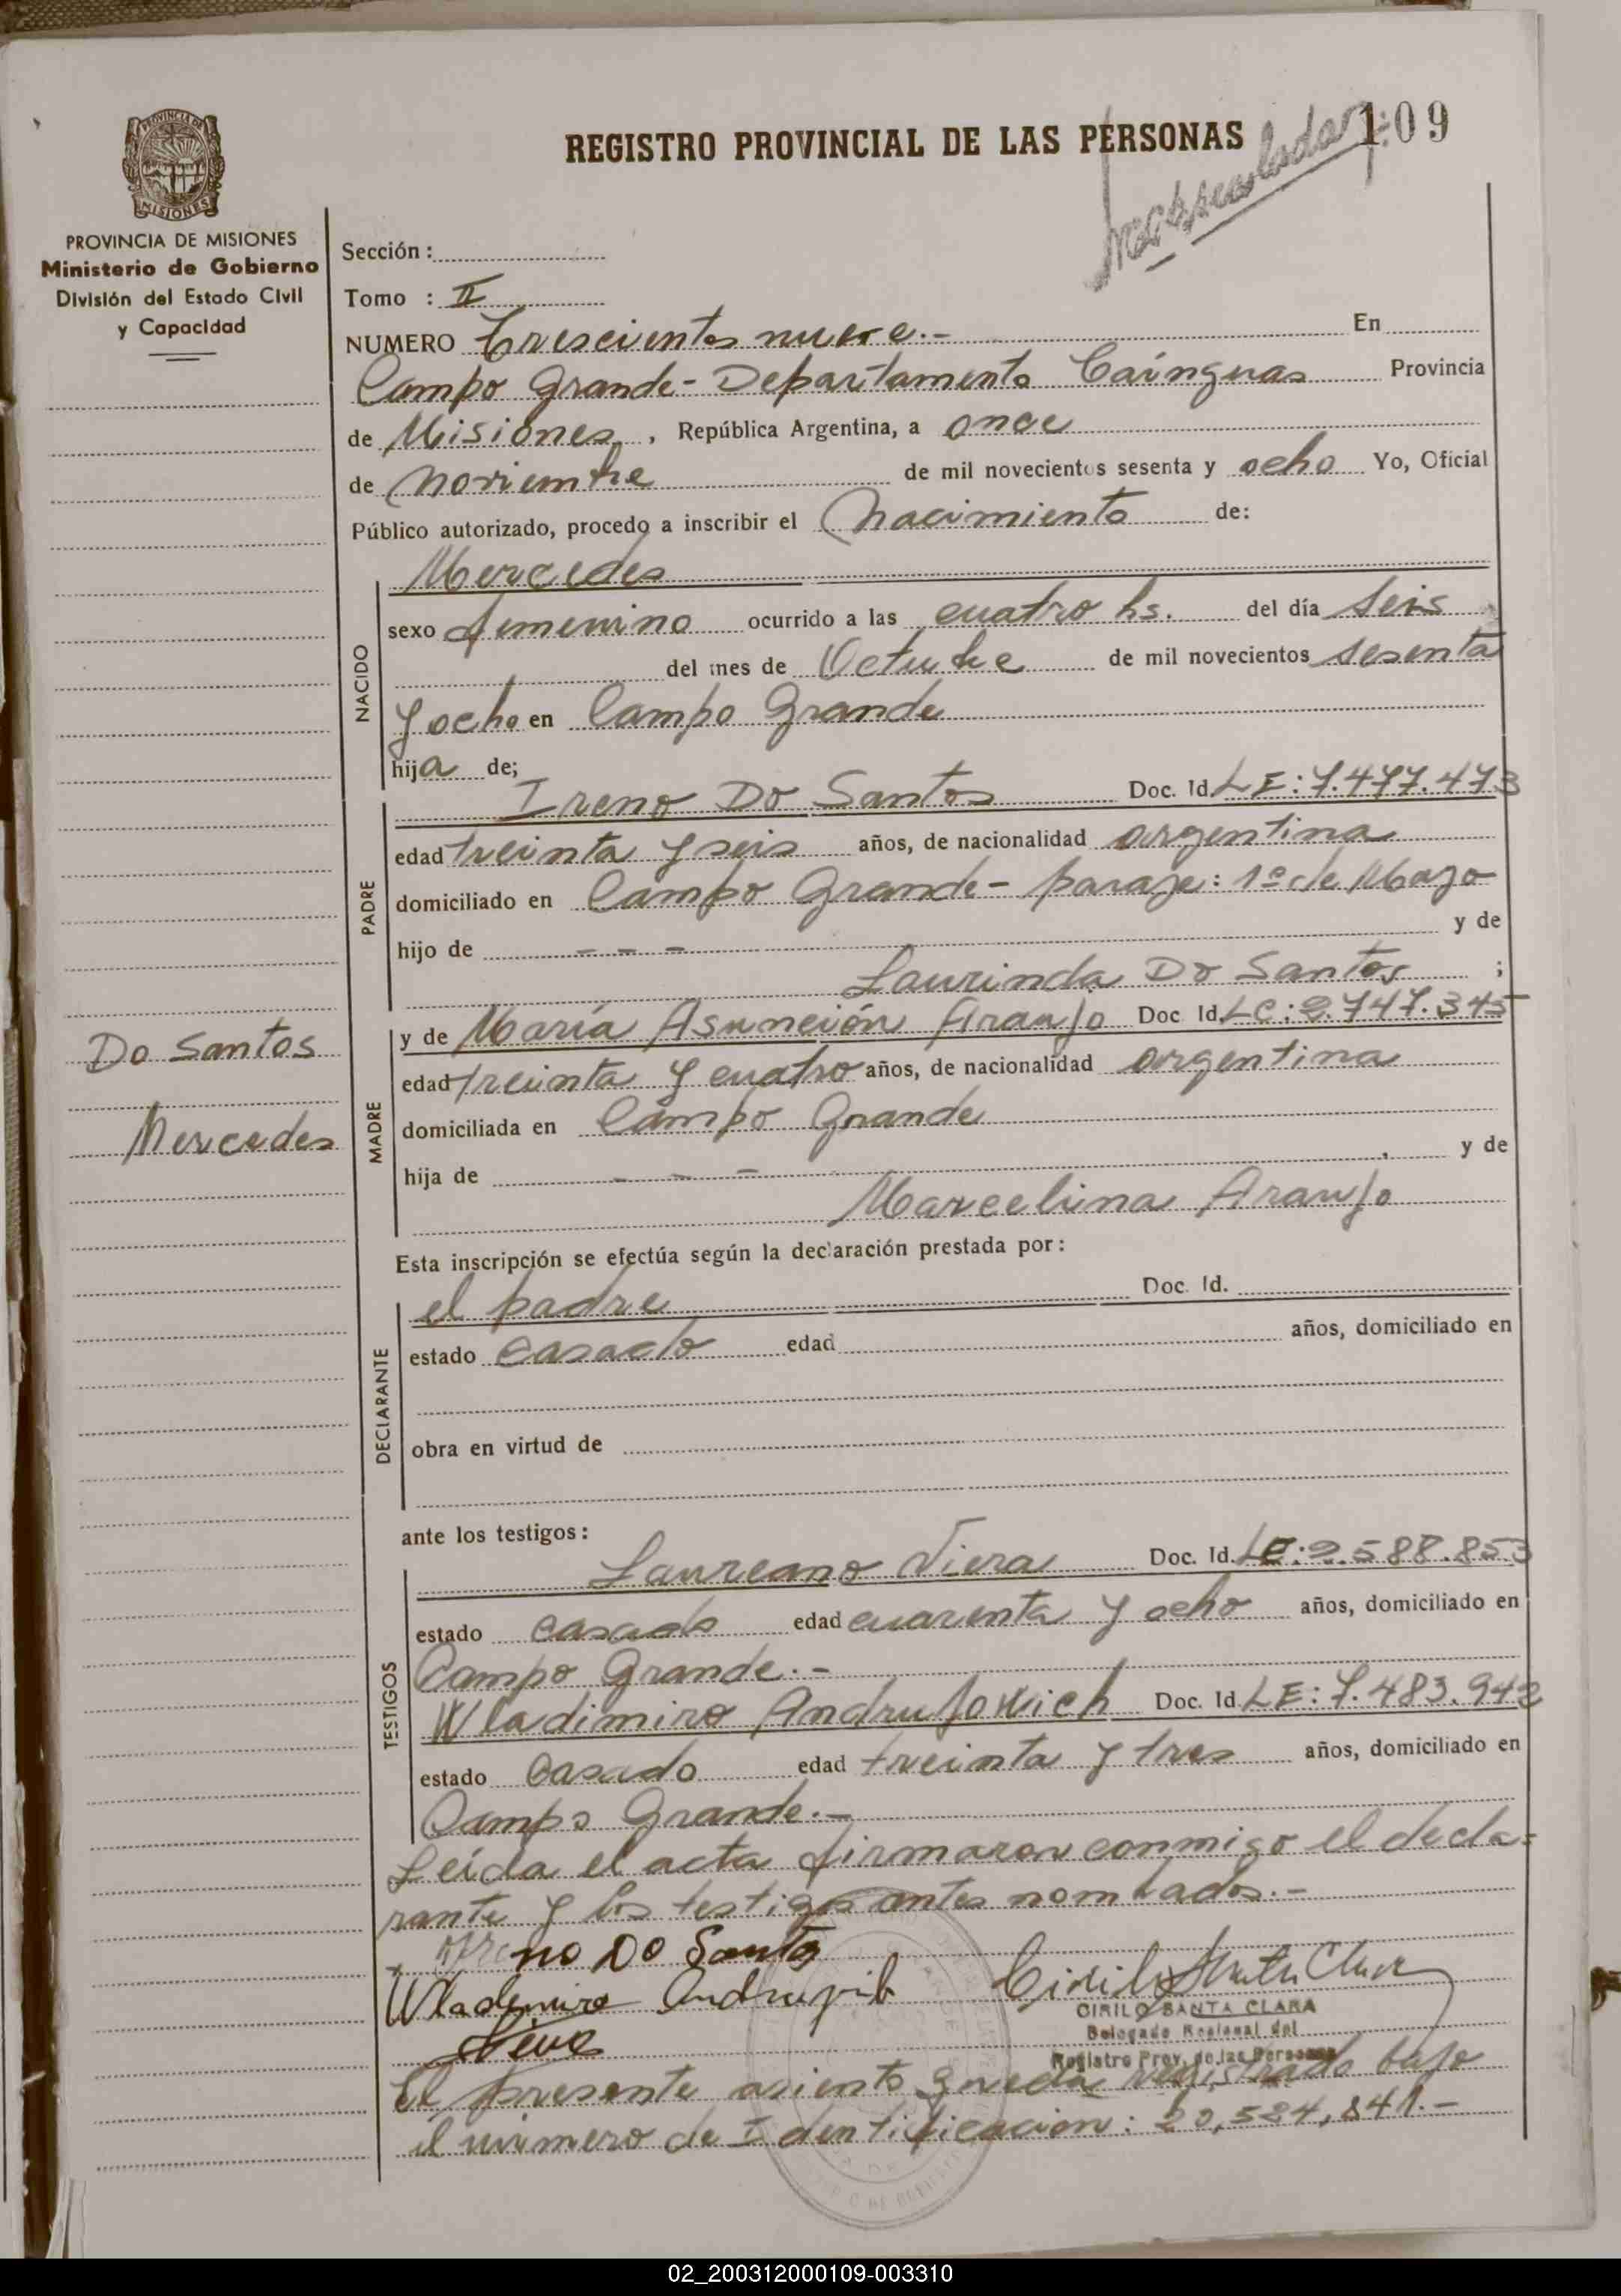 REGISTRO PROVINCIAL DE LAS PERSONAS
109
PROVINCIA DE MISIONES
PROVINCIA DE MISIONES
Ministerio de Gobierno
División del Estado Civil
y Capacidad
Sección :
Tomo : II
NUMERO Trescientos nueve.- En
Campo Grande - Departamento Cainguas Provincia
de Misiones, República Argentina, a once
de noviembre de mil novecientos sesenta y ocho Yo, Oficial
Público autorizado, procedo a inscribir el Nacimiento de:
Mercedes
NACIDO
sexo femenino ocurrido a las cuatro hs. del día seis
del mes de Octubre de mil novecientos sesenta
y ocho en Campo Grande
hija de;
PADRE
Ireno Do Santos Doc. Id. LE: 7.477.473
edad treinta y seis años, de nacionalidad argentina
domiciliado en Campo Grande - paraje: 1º de Mayo
hijo de - - - y de
Laurinda Do Santos ;
Do Santos
Mercedes
MADRE
y de María Asunción Araujo Doc Id. LC: 2.747.345
edad treinta y cuatro años, de nacionalidad argentina
domiciliada en Campo Grande
hija de - - - , y de
Marcelina Araujo
Esta inscripción se efectúa según la declaración prestada por :
DECLARANTE
el padre Doc. Id.
estado casado edad años, domiciliado en
obra en virtud de
ante los testigos :
TESTIGOS
Laureano Viera Doc. Id. LE: 2.588.853
estado casado edad cuarenta y ocho años, domiciliado en
Campo Grande.-
Wladimiro Andrujowich Doc. Id. LE: 7.483.942
estado casado edad treinta y tres años, domiciliado en
Campo Grande.-
Leída el acta firmaron conmigo el decla=
rante y los testigos antes nombrados.-
Ireno Do Santos
Wlademiro
CIRILO SANTA CLARA
Delegado Regional del
Registro Prov. de las Personas
El presente asiento queda registrado bajo
el número de Identificación: 20,584,841.-
02_200312000109-003310